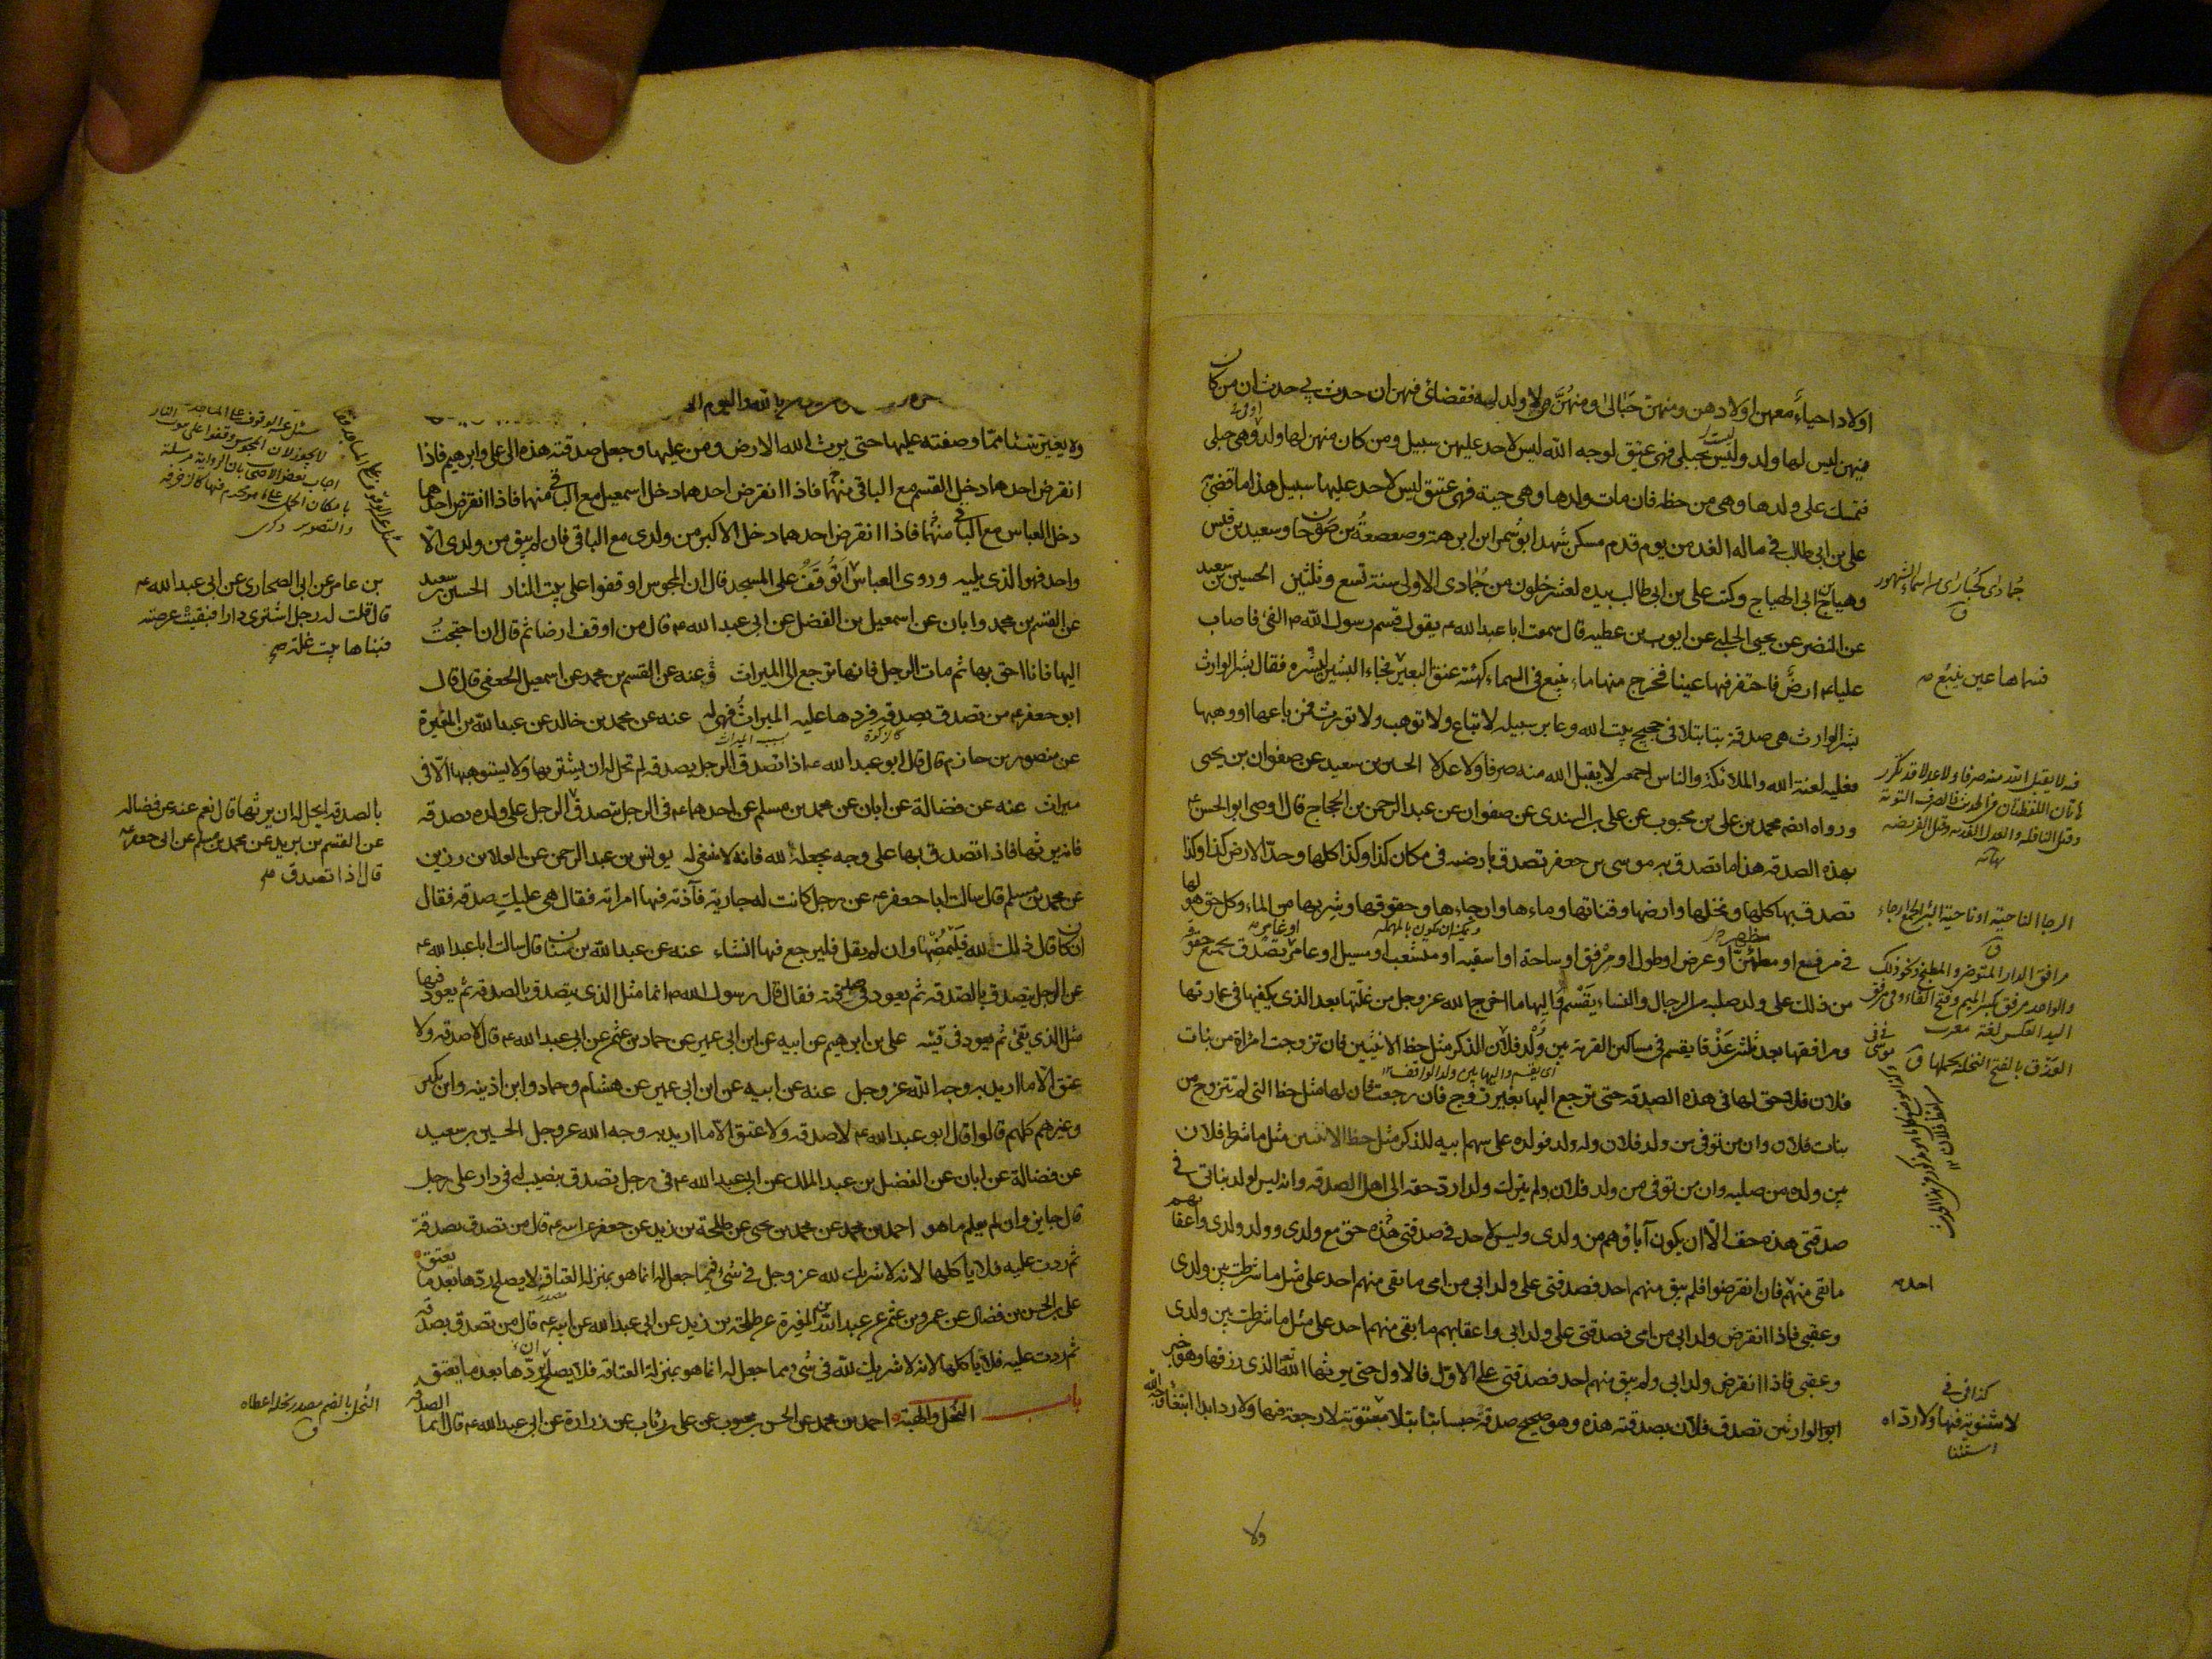 اولادا احياءً معهن اولادهن ومنهن حبالى ومنهن من لا ولد له فقضائى فيهن ان حدث بى حدث ان من كان
منهن ليس لها ولد وليس بحبلى فهى عتيق لوجه الله ليس لاحد عليهن سبيل ومن كان منهن لها ولد وهى حبلى
فتمسك على ولدها وهى من حظه فان مات ولدها وهى حية فهى عتيق ليس لاحد عليها سبيل هذا ما قضى به
على بن ابى طالب فى ماله الغد من يوم قدم مسكن شهد ابو شمر ابن ابرهة وصعصعة بن صوحان وسعيد بن قيس
وهياج بن ابى الهياج وكتب على بن ابى طالب بيده لعشر خلون من جمادى الاولى سنة تسع وثلثين الحسين بن سعيد
عن النضر عن يحيى الحلبى عن ايوب بن عطيه قال سمعت ابا عبد الله ع يقول قسم رسول الله ص الفئ فاصاب
عليا ع ارض فاحتفر فيها عينا فخرج منها ماء ينبع فى السماء كهيئة عنق البعير فجاء البشير ليبشره فقال بشر الوارث
بشر الوارث هى صدقة بتا بتلا فى حجيج بيت الله وعابر سبيله لا تباع ولا توهب ولا تورث فمن باعها او وهبها
فعليه لعنة الله والملائكة والناس اجمعين لا يقبل الله منه صرفا ولا عدلا الحسين بن سعيد عن صفوان بن يحيى
ورواه ايضا محمد بن على بن محبوب عن على بن السندى عن صفوان عن عبد الرحمن بن الحجاج قال اوصى ابو الحسن ع
بهذه الصدقه هذا ما تصدق به موسى بن جعفر تصدق بارضه فى مكان كذا وكذا كلها وحد الارض كذا وكذا
تصدق بها كلها ونخلها وارضها وقناتها وماءها وارجاءها وحقوقها وشربها من الماء وكل حق هو لها
فى مرفع او مظهر او عرض او طول او مرفق او ساحة او اسقيه او متشعب او مسيل او عامر تصدق بجميع حقوقه
من ذلك على ولد صلبه من الرجال والنساء يقسم واليها ما اخرج الله عز وجل من غلتها بعد الذى يكفيها فى عمارتها
ومرافقها بعد ثلثين عذقا يقسم فى مساكين القرية بين ولد فلان الذكر مثل حظ الانثيين فان تزوجت امرأة من بنات
فلان فلا حق لها فى هذه الصدقه حتى ترجع اليها بغير زوج فان رجعت فان لها مثل حظ التى لم تتزوج من
بنات فلان وان من توفى من ولد فلان وله ولد فولده على سهم ابيه للذكر مثل حظ الانثيين مثل ما شرط فلان
بين ولده من صلبه وان من توفى من ولد فلان ولم يترك ولدا رد حقه الى اهل الصدقه وانه ليس لولد بناتى فى
صدقتى هذه حق الا ان يكون آباؤهم من ولدى وليس لاحد فى صدقتى هذه حق مع ولدى وولد ولدى واعقابهم
ما بقى منهم فان انقرضوا فلم يبق منهم احد فصدقتى على ولد ابى من امى ما بقى منهم احد على مثل ما شرطت بين ولدى
وعقبى فاذا انقرض ولد ابى من امى فصدقتى على ولد ابى واعقابهم ما بقى منهم احد على مثل ما شرطت بين ولدى
وعقبى فاذا انقرض ولد ابى ولم يبق منهم احد فصدقتى على الاول فالاول حتى يورثها الله الذى رزقها وهو خير
الوارثين تصدق فلان بصدقته هذه وهو صحيح صدقة حبسا بتا بتلا مبتوتة لا رجعة فيها ولا رد ابدا ابتغاء وجه الله
ولا
جمادى كحبارى من اسماء الشهور
ق
الرجا الناحية او ناحية البئر الجمع ارجاء
ق
العذق بالفتح النخلة بحملها ق
احد
كذا فى فى
لا مثنوية فيها ولا رداه
استثنا
بالله واليوم الاخر
ولا يغير شيئا مما وصفته عليها حتى يرث الله الارض ومن عليها وجعل صدقته هذه الى على وابرهيم فاذا
انقرض احدهما دخل القسم مع الباقى منهما فاذا انقرض احدهما دخل اسمعيل مع الباقى منهما فاذا انقرض احدهما
دخل العباس مع الباقى منهما فاذا انقرض احدهما دخل الاكبر من ولدى مع الباقى فان لم يبق من ولدى الا
واحد فهو الذى يليه وروى العباس اتوقف على المسجد قال ان المجوس اوقفوا على بيت النار الحسين بن سعيد
عن القسم بن محمد وابان عن اسمعيل بن الفضل عن ابى عبد الله ع قال من اوقف ارضا ثم قال ان احتجت
اليها فانا احق بها ثم مات الرجل فانها ترجع الى الميراث وعنه عن القسم بن محمد عن اسمعيل الجعفى قال قال
ابو جعفر ع من تصدق بصدقه فردها عليه الميراث فهى له عنه عن محمد بن خالد عن عبد الله بن المغيرة
عن منصور بن حازم قال قال ابو عبد الله ع اذا تصدق الرجل بصدقه لم تحل له ان يشتريها ولا يستوهبها الا فى
ميراث عنه عن فضالة عن ابان عن محمد بن مسلم عن احدهما ع فى الرجل تصدق الرجل على ولده بصدقه
فانه يرثها فاذا تصدق بها على وجه يجعله لله فانه لا ينبغى له يونس بن عبد الرحمن عن العلا بن رزين
عن محمد بن مسلم قال سالت ابا جعفر ع عن رجل كانت له جارية فآذته فيها امراته فقال هى عليك صدقه فقال
ان كان قال ذلك لله فليمضها وان لم يقل فليرجع فيها ان شاء عنه عن عبد الله بن سنان قال سالت ابا عبد الله ع
عن الرجل يتصدق بالصدقه ثم يعود فى صدقته فقال قال رسول الله ص انما مثل الذى يتصدق بالصدقه ثم يعود فيها
مثل الذى يقئ ثم يعود فى قيئه على بن ابرهيم عن ابيه عن ابن ابى عمير عن حماد بن عثمن عن ابى عبد الله ع قال لا صدقه ولا
عتق الا ما اريد به وجه الله عز وجل عنه عن ابيه عن ابن ابى عمير عن هشام وحماد وابن اذينه وابن بكير
وغيرهم كلهم قالوا قال ابو عبد الله ع لا صدقه ولا عتق الا ما اريد به وجه الله عز وجل الحسين بن سعيد
عن فضالة عن ابان عن الفضل بن عبد الملك عن ابى عبد الله ع فى رجل تصدق بنصيب له فى دار على رجل
قال جايز وان لم يعلم ما هو احمد بن محمد عن محمد بن يحيى عن طلحة بن زيد عن جعفر عن ابيه ع قال من تصدق بصدقة
ثم ردت عليه فلا ياكلها لانه لا شريك لله عز وجل فى شئ مما جعل له انما هو بمنزلة العتاقة لا يصلح ردها بعد ما يعتق
على بن الحسن بن فضال عن عمرو بن عثمن عن عبد الله بن المغيرة عن طلحة بن زيد عن ابى عبد الله عن ابيه ع قال من تصدق بصدقه
ثم ردت عليه فلا ياكلها لانه لا شريك لله فى شئ مما جعل له انما هو بمنزلة العتاقه فلا يصلح ردها بعد ما يعتق
باب النحل والهبة احمد بن محمد عن الحسن بن محبوب عن على بن رئاب عن زرارة عن ابى عبد الله ع قال انما الصدقه
بن عامر عن ابى الصحارى عن ابى عبد الله ع
قال قلت له رجل اشترى دارا فبقيت عرصته
فبناها بيت غلة صح
بالصدقه ايحل له ان يرثها قال نعم عنه عن فضاله
عن القسم بن بريد عن محمد بن مسلم عن ابى جعفر ع
قال اذا تصدق
النحل بالضم مصدر نحله اعطاه
ق